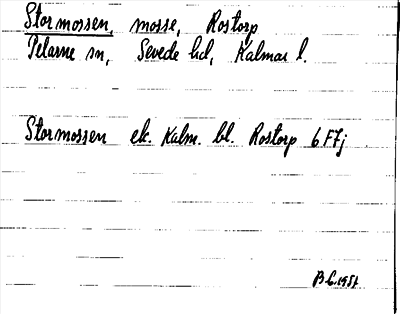 Stormossen, mosse, Rostorp
Pelarne sn, Sevede hd, Kalmar l.
Stormossen ek. Kalm. bl. Rostorp 6F7j